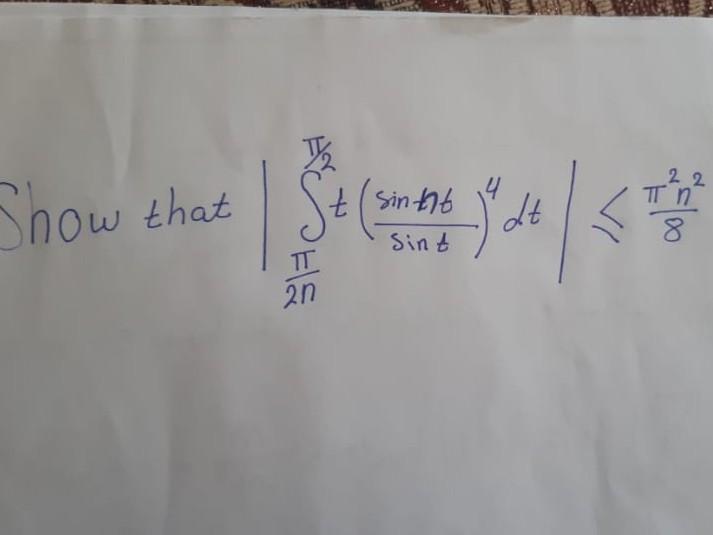 Show that | ∫_{π/2n}^{π/2} t (sin nt / sin t)^4 dt | ≤ π²n² / 8